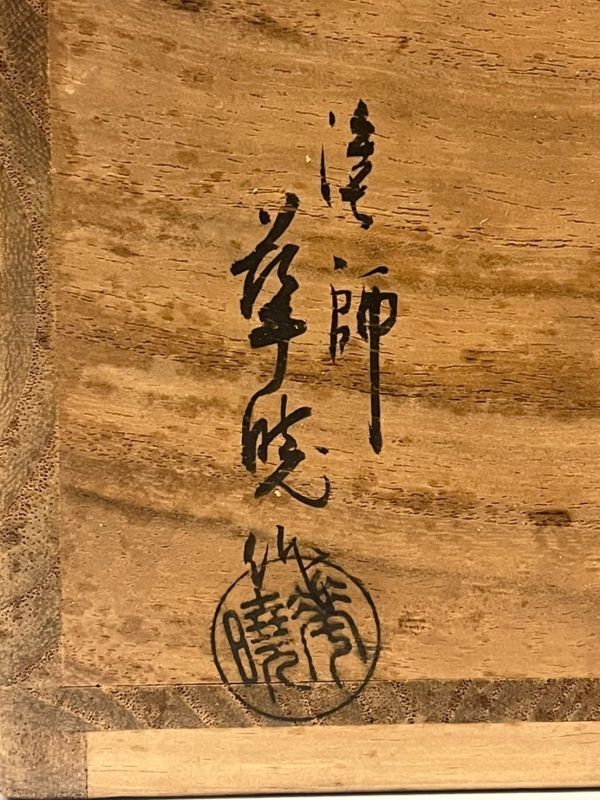 塗師
華暁作
華曉